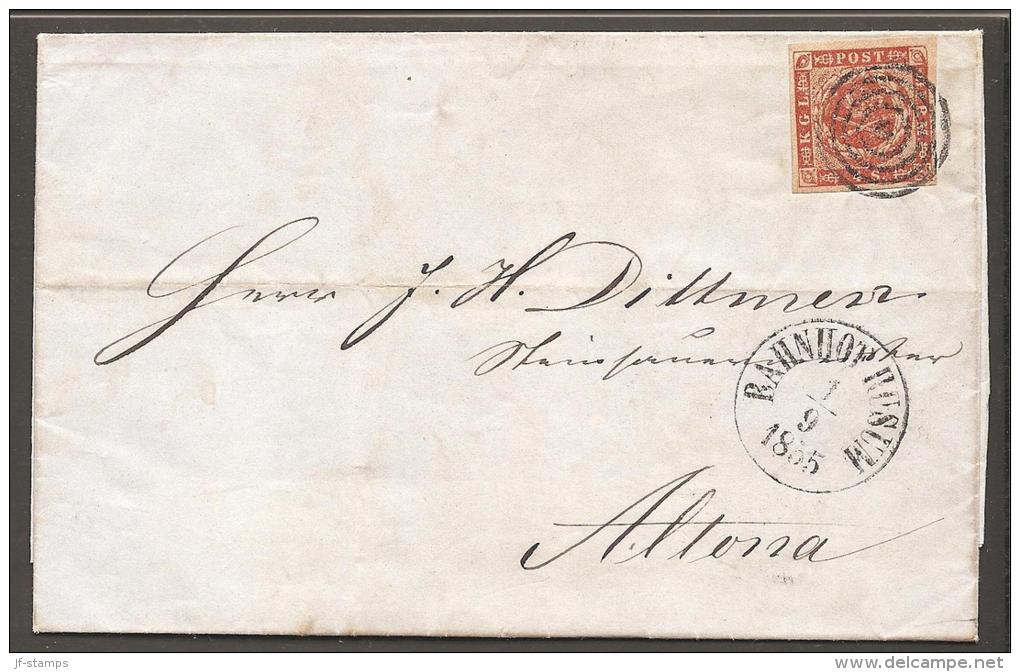 POST
K G L
S.
Herr J. H. Dittmer
BAHNHOF HUSUM
1/9
1855
Altona
jf-stamps
www.delcampe.net